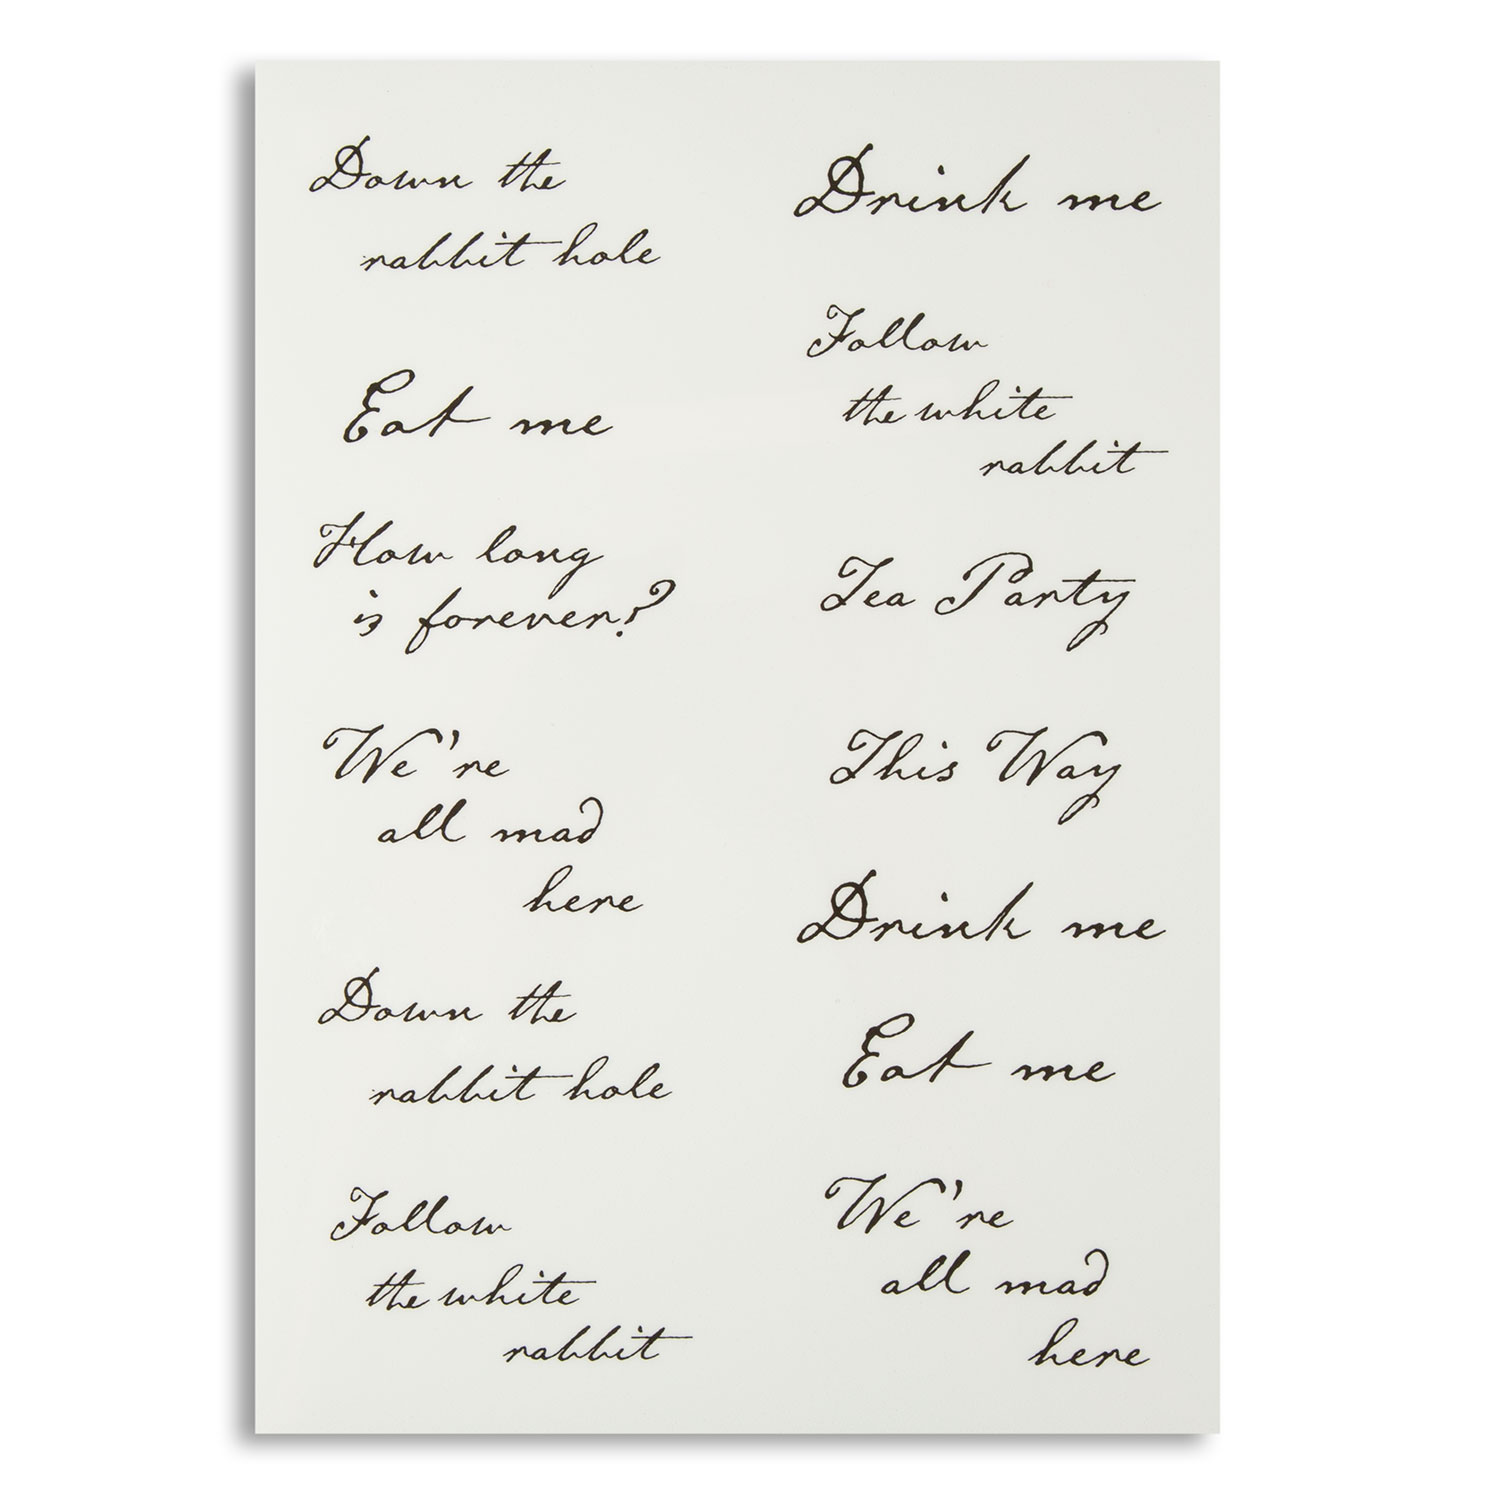 Down the
rabbit hole
Eat me
How long
is forever?
We're
all mad
here
Down the
rabbit hole
Follow
the white
rabbit
Drink me
Follow
the white
rabbit
Tea Party
This Way
Drink me
Eat me
We're
all mad
here